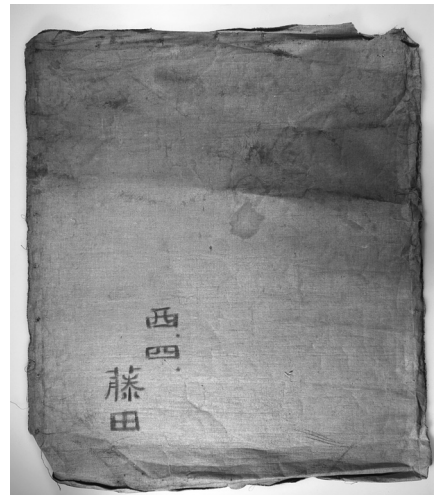 西.四.
藤田